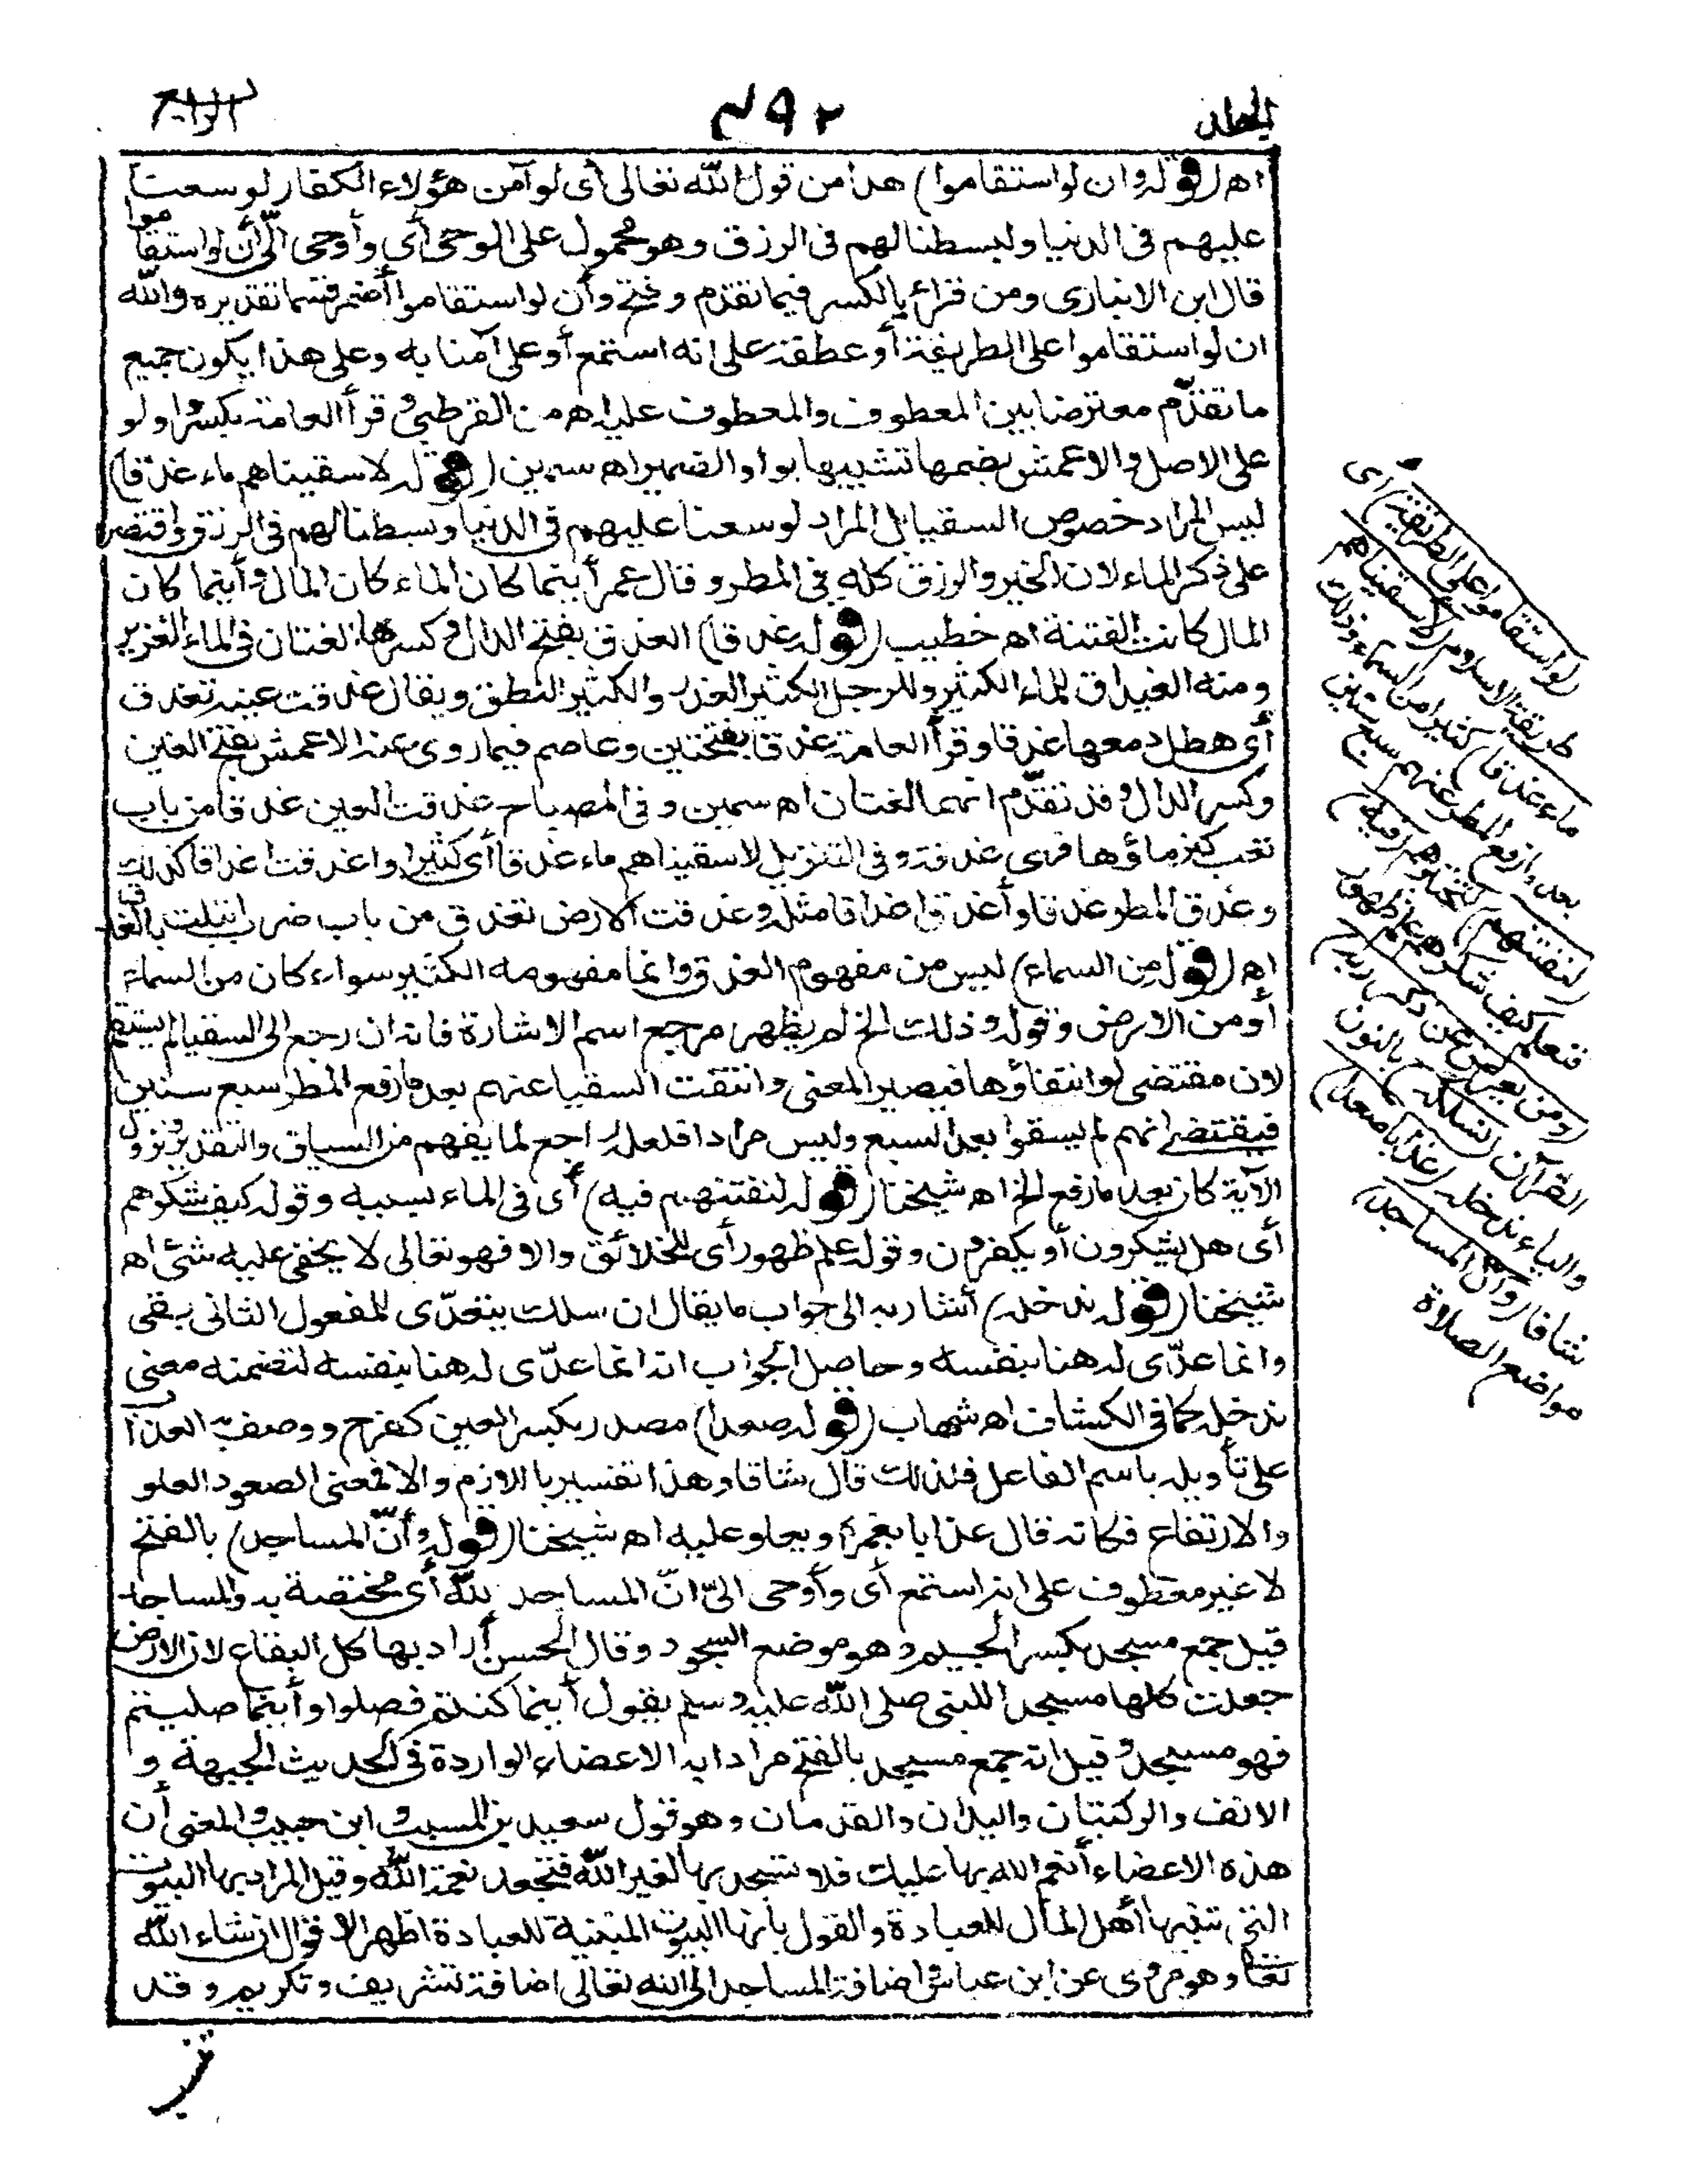 المجلد ٤٩٢ الرابع
اهـ (قوله وان لو استقاموا) هذا من قول الله تعالى أى لو آمن هؤلاء الكفار لوسعنا
عليهم فى الدنيا ولبسطنا لهم فى الرزق وهو محمول على الوحى أى وأوحى الىّ أن لو استقاموا
قال ابن الانبارى ومن قرأ بالكسر فيما تقدم وفتح وأن لو استقاموا أضمر قسما تقديره والله
ان لو استقاموا على الطريقة أو عطفه على انه استمع أو على آمنا به وعلى هذا يكون جميع
ما تقدّم معترضا بين المعطوف والمعطوف عليه اهـ من القرطبى وقرأ العامة بكسر واو لو
على الاصل والاعمش بضمها تشبيها بواو الضمير اهـ سمين (قوله لاسقيناهم ماء غدقا)
ليس المراد خصوص السقيا بل المراد لوسعنا عليهم فى الدنيا وبسطنا لهم فى الرزق واقتصر
على ذكر الماء لان الخير والرزق كله فى المطر وقال عمر أينما كان الماء كان المال وأينما كان
المال كانت الفتنة اهـ خطيب (قوله غدقا) الغدق بفتح الدال وكسرها لغتان فى الماء الغزير
ومنه الغيداق للماء الكثير وللرجل الكثير العدو والكثير النطق ويقال غدقت عينه تغدق
أى هطل دمعها غدقا وقرأ العامة غدقا بفتحتين وعاصم فيما روى عنه الاعمش بفتح الغين
وكسر الدال وقد تقدّم انهما لغتان اهـ سمين وفى المصباح غدقت العين غدقا من باب
تعب كثر ماؤها فهى غدقة وفى التنزيل لاسقيناهم ماء غدقا أى كثيرا واغدقت اغداقا كذلك
وغدق المطر غدقا وأغدق اغداقا مثله وغدقت الارض تغدق من باب ضرب ابتلت بالغدق
اهـ (قوله من السماء) ليس من مفهوم الغدق وانما مفهومه الكثير سواء كان من السماء
أو من الارض وقوله وذلك الخ لم يظهر مرجع اسم الاشارة فانه ان رجع الى السقيا لم يستقم
لان مقتضى لو انتفاؤها فيصير المعنى وانتفت السقيا عنهم بعد ما رفع المطر سبع سنين
فيقتضى انهم لم يسقوا بعد السبع وليس مرادا فلعله راجع لما يفهم من السياق والتقدير ونزول
الآية كان بعد ما رفع الخ اهـ شيخنا (قوله لنفتنهم فيه) أى فى الماء بسببه وقوله كيف شكرهم
أى هل يشكرون أو يكفرون وقوله علم ظهور أى للخلائق والا فهو تعالى لا يخفى عليه شئ اهـ
شيخنا (قوله ندخله) أشار به الى جواب ما يقال ان سلك يتعدّى للمفعول الثانى بفى
وانما عدّى له هنا بنفسه وحاصل الجواب انه انما عدّى له هنا بنفسه لتضمنه معنى
ندخله كما فى الكشاف اهـ شهاب (قوله صعدا) مصدر بكسر العين كفرح ووصف به العذاب
على تأويله باسم الفاعل فلذلك قال شاقا وهذا تفسير باللازم والا فمعنى الصعود العلو
والارتفاع فكانه قال عذابا يغمره ويعلو عليه اهـ شيخنا (قوله وأنّ المساجد) بالفتح
لا غير معطوف على انه استمع أى وأوحى الىّ انّ المساجد لله أى مختصة به والمساجد
قيل جمع مسجد بكسر الجيم وهو موضع السجود وقال الحسن أراد بها كل البقاع لان الارض
جعلت كلها مسجدا للنبى صلى الله عليه وسلم يقول أينما كنتم فصلوا وأينما صليتم
فهو مسجد وقيل انه جمع مسجد بالفتح مرادا به الاعضاء الواردة فى الحديث الجبهة و
الانف والركبتان واليدان والقدمان وهو قول سعيد بن المسيب وابن حبيب والمعنى أن
هذه الاعضاء أنعم الله بها عليك فلا تسجد بها لغير الله فتجحد نعمة الله وقيل المراد بها البيوت
التى تبنيها أهل الملل للعبادة والقول بانها البيوت المبنية للعبادة اظهر الاقوال ان شاء الله
تعا وهو مروى عن ابن عباس اضافة المساجد الى الله تعالى اضافة تشريف وتكريم وقد
لو استقاموا على الطريقة) أى
طريقة الاسلام (لاسقيناهم
ماء غدقا) كثيرا من السماء وذلك
بعد ما رفع المطر عنهم سبع سنين
(لنفتنهم) لنختبرهم (فيه)
فنعلم كيف شكرهم علم ظهور
(ومن يعرض عن ذكر ربه)
القرآن (نسلكه) بالنون
والياء ندخله (عذابا صعدا)
شاقا (وأن المساجد)
مواضع الصلاة